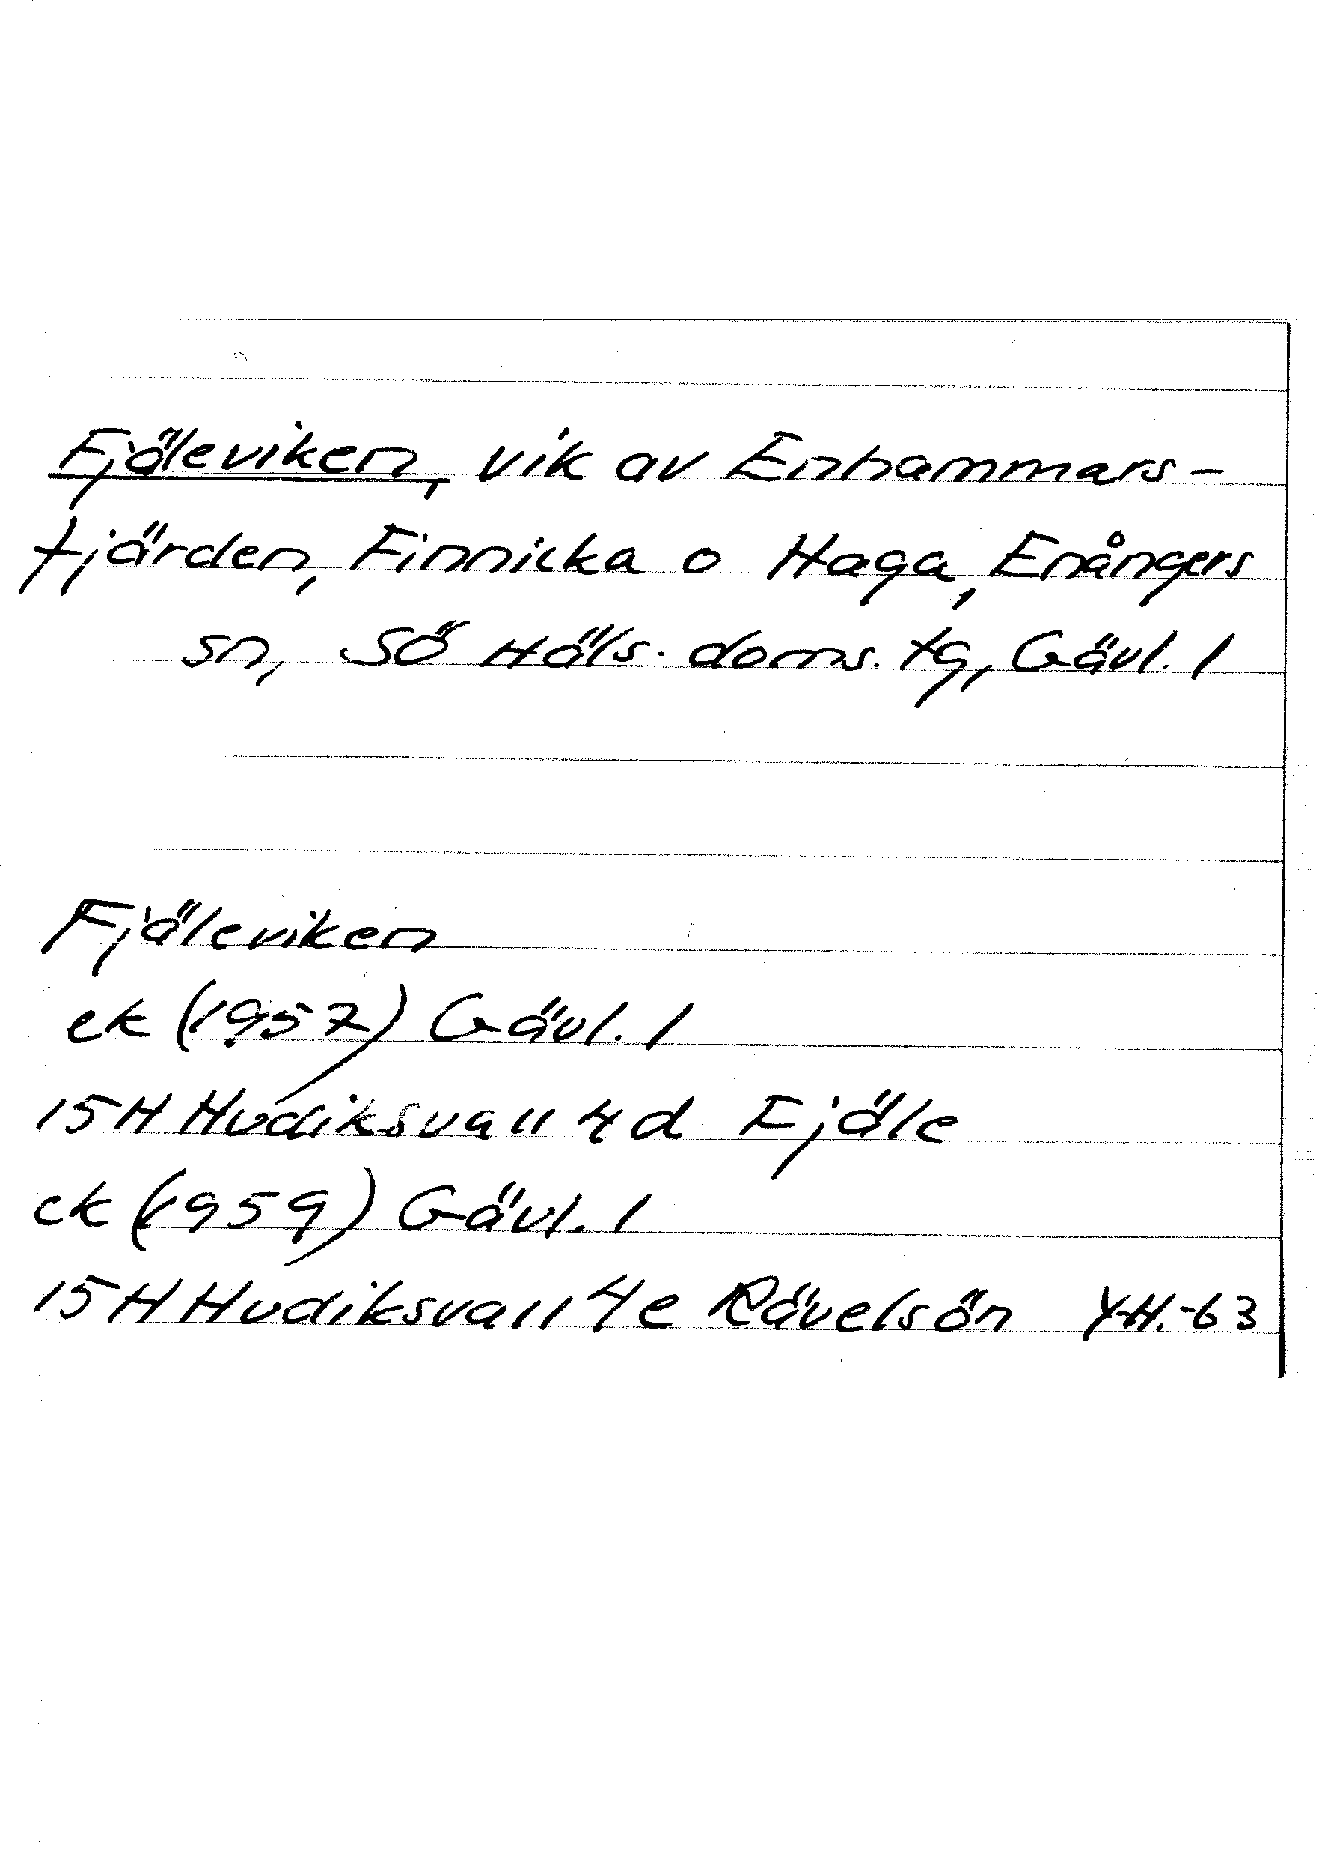 Fjäleviken, vik av Enhammars-
fjärden, Finnicka o Haga, Enångers
sn, Sö Häls. doms. tg, Gävl. l
Fjäleviken
ek (1957) Gävl. l
15H Hudiksvall 4d Fjäle
ek (1959) Gävl. l
15H Hudiksvall 4e Rävelsön Y.H.-63